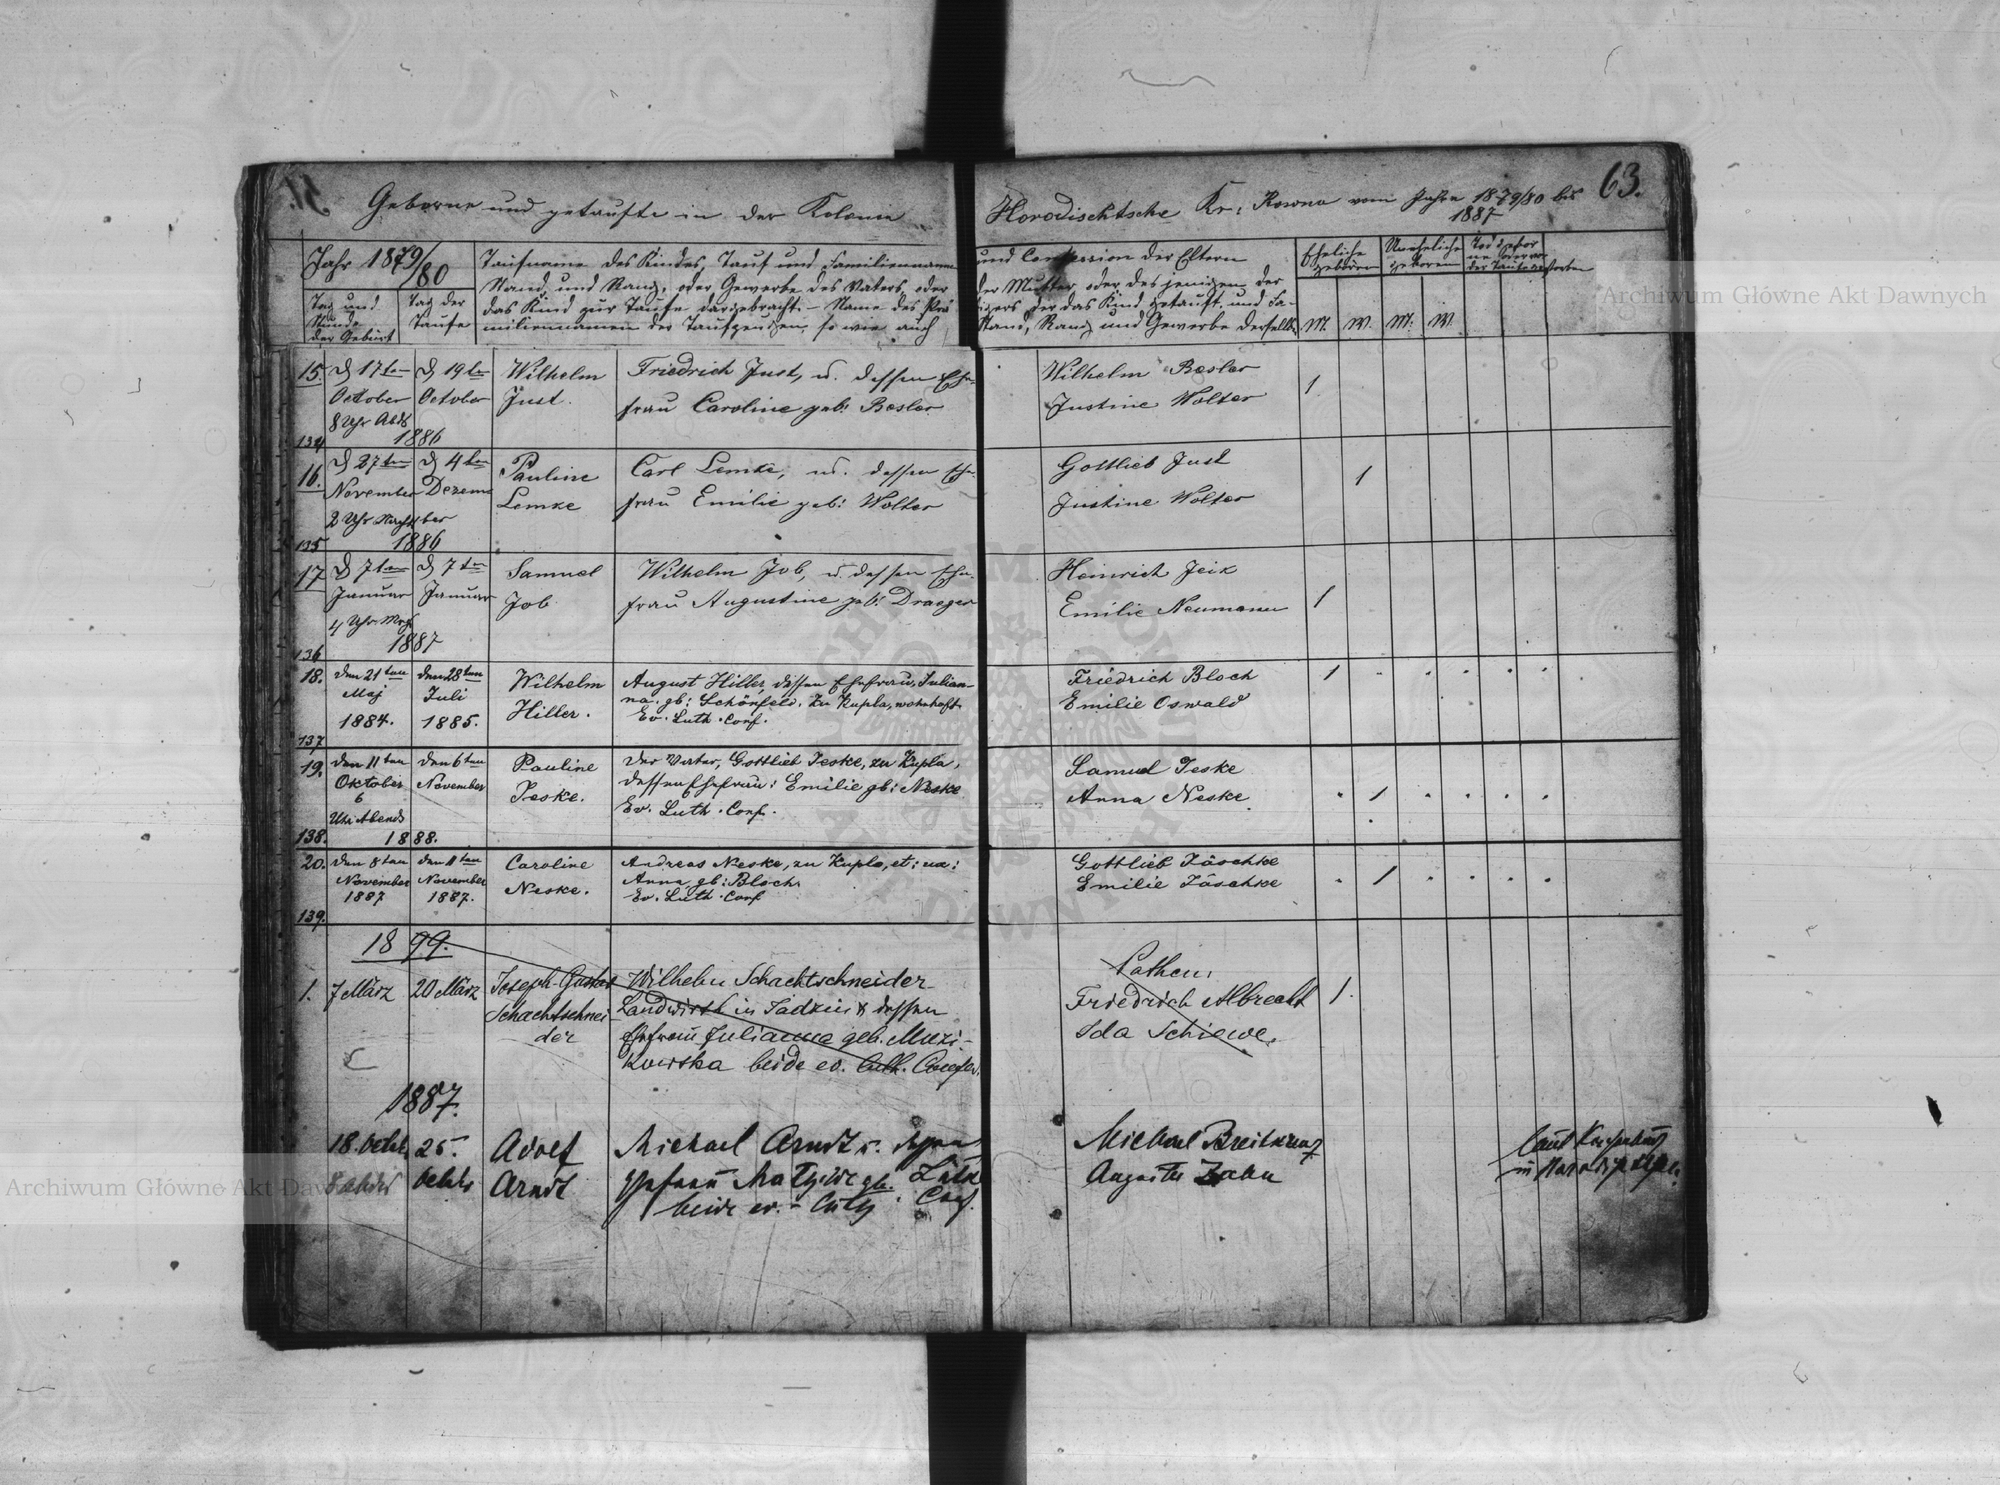 51.
Geborne und getaufte in der Kolonie Horodischtsche Kr: Rowno vom Jahre 1879/80 bis 1887
63.
Jahr 1879/80
Tag und Stunde der Geburt
Tag der Taufe
Taufname des Kindes, Tauf und Familienname und Confession der Eltern
Stand und Rang, oder Gewerbe des Vaters oder der Mutter oder des jenigen der
das Kind zur Taufe dargebracht. - Name des Predigers der das Kind getauft und Fa-
miliennamen der Taufzeugen, so wie auch Stand, Rang und Gewerbe derselben
Eheliche geboren
Uneheliche geboren
M. W. M. W.
15. d 17ten October 8 Uhr Abds
d 19ten October
1886
Wilhelm Just.
Friedrich Just, u. dessen Ehe-
frau Caroline geb: Besler
Wilhelm Besler
Justine Wolter
1
134
16. d 27ten November 2 Uhr Nachts
d 4ten Dezember
1886
Pauline Lemke
Carl Lemke, u. dessen Ehe-
frau Emilie geb: Wolter
Gottlieb Just
Justine Wolter
1
135
17 d 7ten Januar 4 Uhr Mrg
d 7ten Januar
1887
Samuel Job
Wilhelm Job, u. dessen Ehe-
frau Augustine geb: Draeger
Heinrich Jeik
Emilie Neumann
1
136
18. den 21ten Maj 1884.
den 28ten Juli 1885.
Wilhelm Hiller.
August Hiller, dessen Ehefrau, Julian-
na gb: Schönfeld. Zu Kupla, wohnhaft.
Ev. Luth. Conf.
Friedrich Bloch
Emilie Oswald
1
137
19. den 11ten Oktober 6 Uhr Abends
den 6ten November
1888.
Pauline Jeske.
Der Vater, Gottlieb Jeske, zu Kupla,
dessen Ehefrau: Emilie gb: Neske
Ev. Luth. Conf.
Samuel Jeske
Anna Neske
1
138.
20. den 8ten November 1887
den 11ten November 1887.
Caroline Neske.
Andreas Neske, zu Kupla, et: ux:
Anna gb: Bloch
Ev. Luth. Conf
Gottlieb Jäschke
Emilie Jäschke
1
139.
1899.
1. 7 März
20 März
Joseph Gustav Schachtschnei der
Wilhelm Schachtschneider
Landwirth in Sadkiu & dessen
Ehefrau Julianna geb. Muzi-
kowska beide ev. Luth. Confes.
Pathen:
Friedrich Albrecht
Ida Schiewe.
1.
1887.
18. Octbr
25. Octbr
Adolf Arndt
Michael Arndt u. dessen
Ehefrau Mathilde gb.
beide ev. - Luth Conf.
Michael Breitkreuz
Auguste Zahn
laut Kirchenbuch
in
Archiwum Główne Akt Dawnych
Archiwum Główne Akt Dawnych